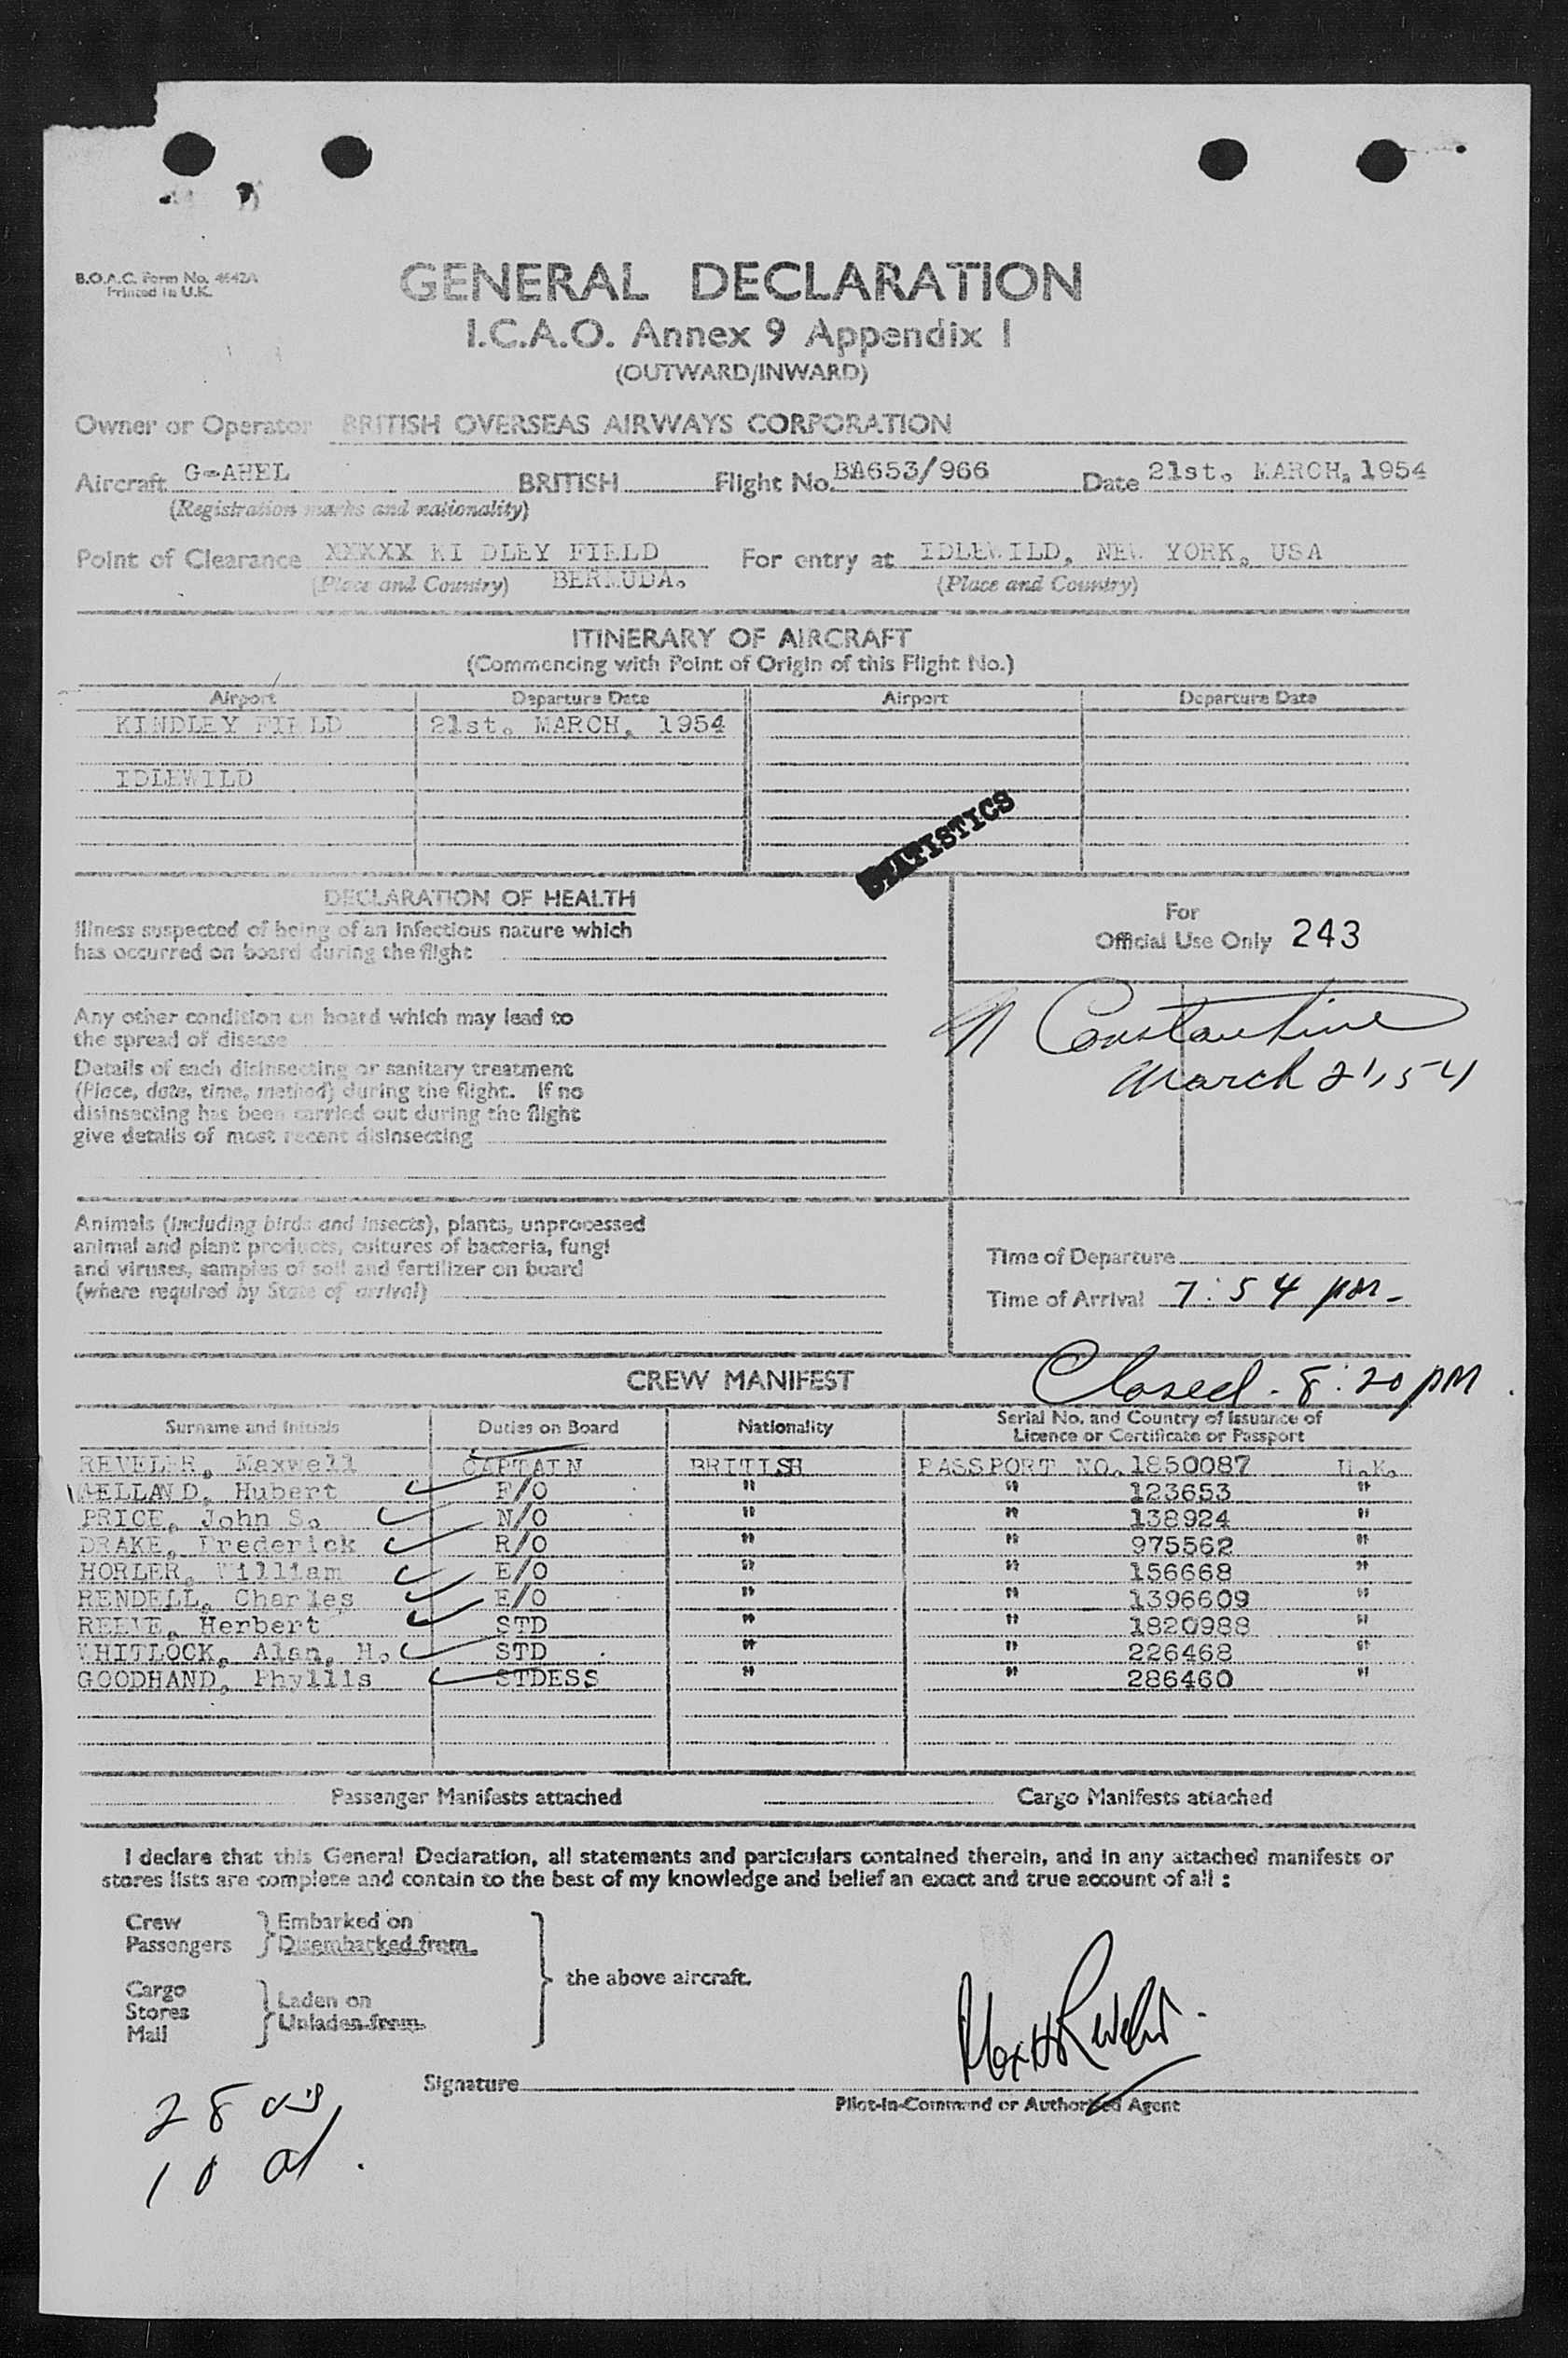 B.O.A.C. Form No. 4642A
Printed in U.K.
GENERAL DECLARATION
I.C.A.O. Annex 9 Appendix I
(OUTWARD/INWARD)
Owner or Operator BRITISH OVERSEAS AIRWAYS CORPORATION
Aircraft G-AHEL BRITISH Flight No. BA653/966 Date 21st. MARCH, 1954
(Registration marks and nationality)
Point of Clearance XXXXX KI DLEY FIELD For entry at IDLEWILD, NEW YORK, USA
(Place and Country) BERMUDA. (Place and Country)
ITINERARY OF AIRCRAFT
(Commencing with Point of Origin of this Flight No.)
Airport Departure Date Airport Departure Date
KINDLEY FIELD 21st. MARCH, 1954
IDLEWILD
STATISTICS
DECLARATION OF HEALTH
Illness suspected of being of an infectious nature which
has occurred on board during the flight
Any other condition on board which may lead to
the spread of disease
Details of each disinsecting or sanitary treatment
(Place, date, time, method) during the flight. If no
disinsecting has been carried out during the flight
give details of most recent disinsecting
For
Official Use Only 243
N Constantine
March 21, 54
Animals (including birds and insects), plants, unprocessed
animal and plant products, cultures of bacteria, fungi
and viruses, samples of soil and fertilizer on board
(where required by State of arrival)
Time of Departure
Time of Arrival 7:54 pm-
Closed - 8:20 PM
CREW MANIFEST
Surname and Initials Duties on Board Nationality Serial No. and Country of Issuance of
Licence or Certificate or Passport
REVELER, Maxwell CAPTAIN BRITISH PASSPORT NO. 1850087 U.K.
WELLAND, Hubert F/O " " 123653 "
PRICE, John S. N/O " " 138924 "
DRAKE, Frederick R/O " " 975562 "
HORLER, William E/O " " 156668 "
RENDELL, Charles E/O " " 1396609 "
REEVE, Herbert STD " " 1820988 "
WHITLOCK, Alan, H. STD " " 226468 "
GOODHAND, Phyllis STDESS " " 286460 "
Passenger Manifests attached Cargo Manifests attached
I declare that this General Declaration, all statements and particulars contained therein, and in any attached manifests or
stores lists are complete and contain to the best of my knowledge and belief an exact and true account of all :
Crew Embarked on
Passengers Disembarked from
the above aircraft.
Cargo Laden on
Stores Unladen from
Mail
Signature
Pilot-in-Command or Authorised Agent
28
10